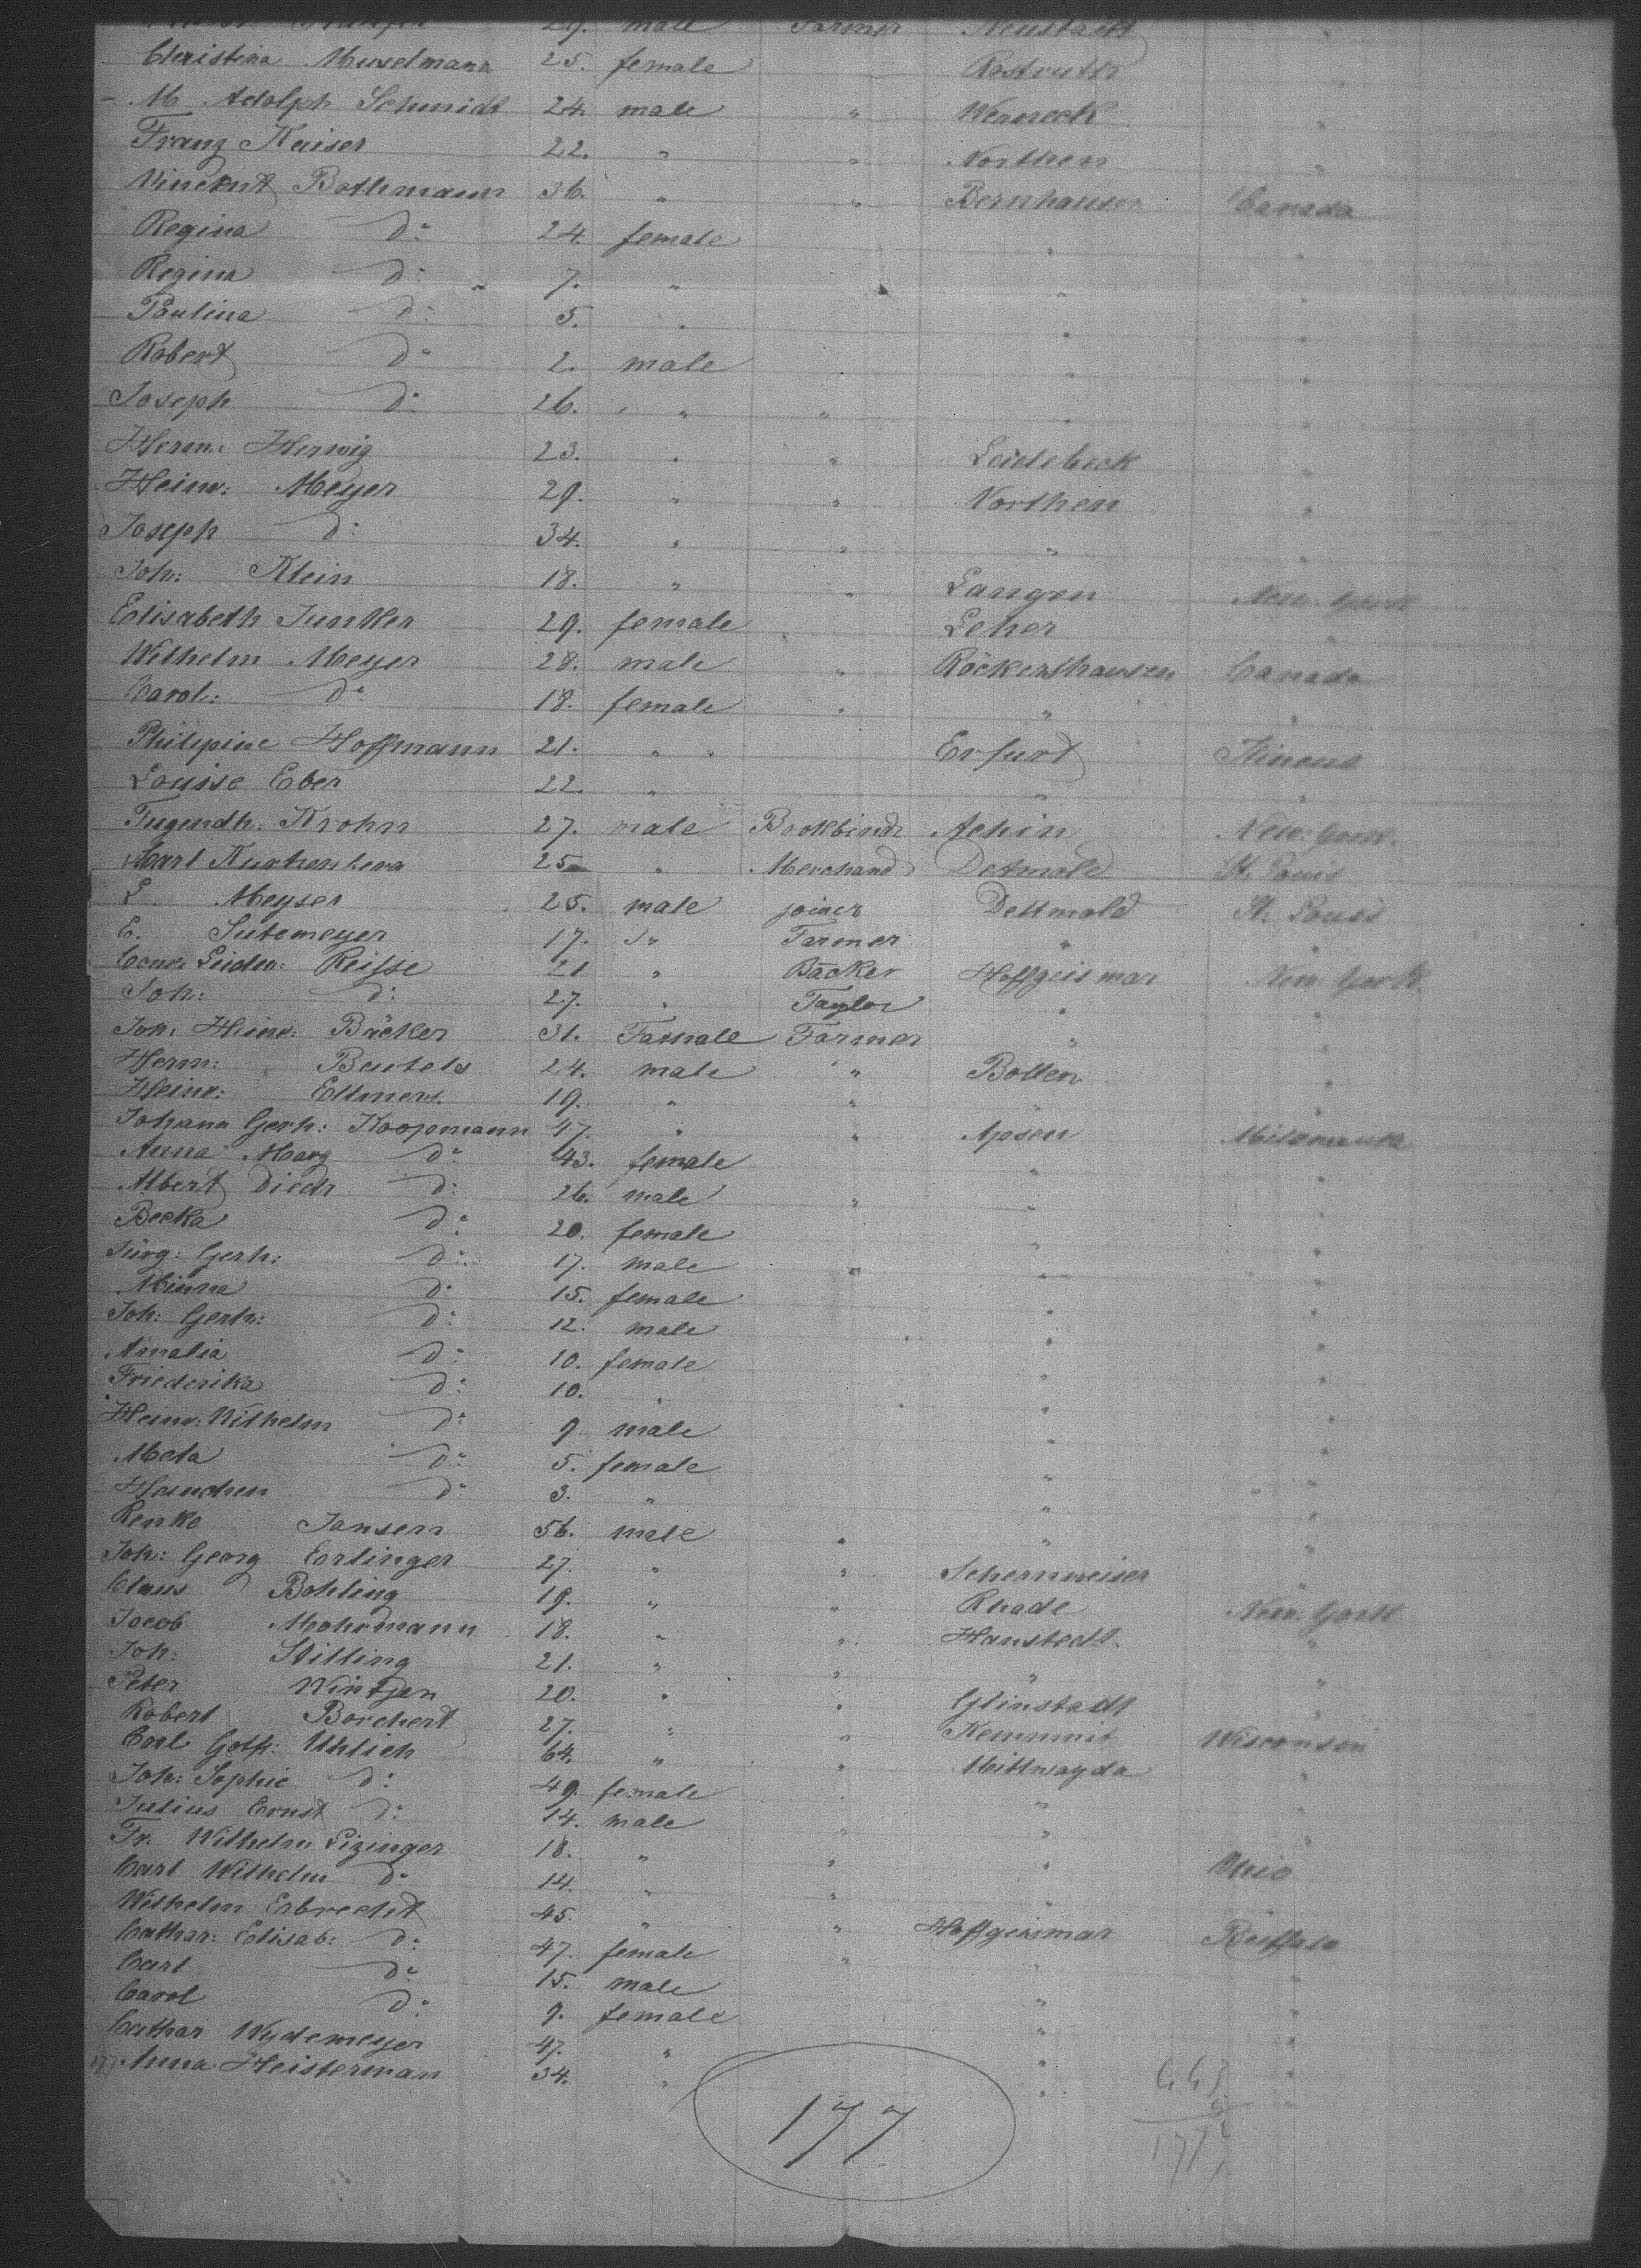 29. male Farmer Neustadt
Christina Muselmann 25. female
M Adolph Schmidt 24. male " Werneck "
Franz Kaiser 22. " " Northen "
Vincent Bothmann 36. " " Bernhausen Canada
Regina do 24. female " "
Regina do 7. " " "
Paulina do 5. " " "
Robert do 2. male " "
Joseph do 26. " " " "
Herm: Herwig 23. " " Leidebeck "
Heinr: Meyer 29. " " Northen "
Joseph do 34. " " " "
Joh: Klein 18. " " Langen New York
Elisabeth Junker 29. female Leher "
Wilhelm Meyer 28. male " Röckershausen Canada
Carol: do 18. female " "
Philipine Hoffmann 21. " Erfurt
Louise Eber 22. " " "
Tugendh: Krohn 27. male Bookbindr Achin New York.
Carl 25 " Merchand Detmold St. Louis
L. Meyser 25. male joiner Dettmold St. Louis
E. Sutemeyer 17. " Farmer " "
Reisse 21 " Bäcker Hoffgeismar New York
Joh: do 27. " Taylor " "
Joh: Heinr: Bäcker 31. Famale Farmer " "
Herm: Beutels 24. male " Bollen "
Heinr: Ellmers. 19. " " " "
Johann Gerh: Koopmann 47. " " Aposen Milwaukee
Anna Marg do 43. female " "
Albert Diedr do 26. male " " "
Becka do 20. female " "
Jürg: Gerh: do 17. male " " "
Minna do 15. female " "
Joh: Gerh: do 12. male " "
Amalia do 10. female " "
Friederika do 10. " " "
Heinr: Wilhelm do 9. male " "
Meta do 5. female " "
Hanchen do 3. " " "
Renke Jansen 56. male " " "
Joh: Georg Erlinger 27. " " "
Claus Bohling 19. " " Rhade New York
Jacob Mohrmann 18. " " Hanstedt. "
Joh: Stilling 21. " " " "
Peter Wintjen 20. " " Glinstadt "
Robert Borchert 27. " " Kemmnit Wisconsin
Carl Gotfr: Uhlich 64. " " Mittwayda "
Joh: Sophie do 49. female " "
Julius Ernst do 14. male " " "
Fr. Wilhelm Lizinger 18. " " " Ohio
Carl Wilhelm do 14. " " " "
Wilhelm Erbrecht 45. " " Hoffgeismar Buffalo
Cathar: Elisab: do 47. female " " "
Carl do 15. male " "
Carol do 9. female " "
Cathar Wydemeyer 47. " " "
177 Anna Heisterman 34. " " "
177